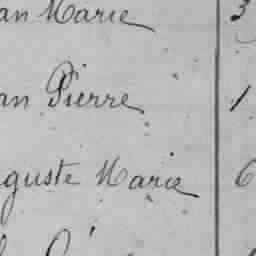 an Marie 3
an Pierre 1
guste Marie 6